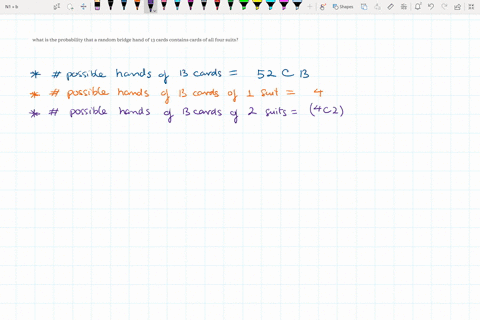 N7 + b
Shapes
what is the probability that a random bridge hand of 13 cards contains cards of all four suits?
* # possible hands of 13 cards = 52 C 13
* # possible hands of 13 cards of 1 suit = 4
* # possible hands of 13 cards of 2 suits = (4C2)